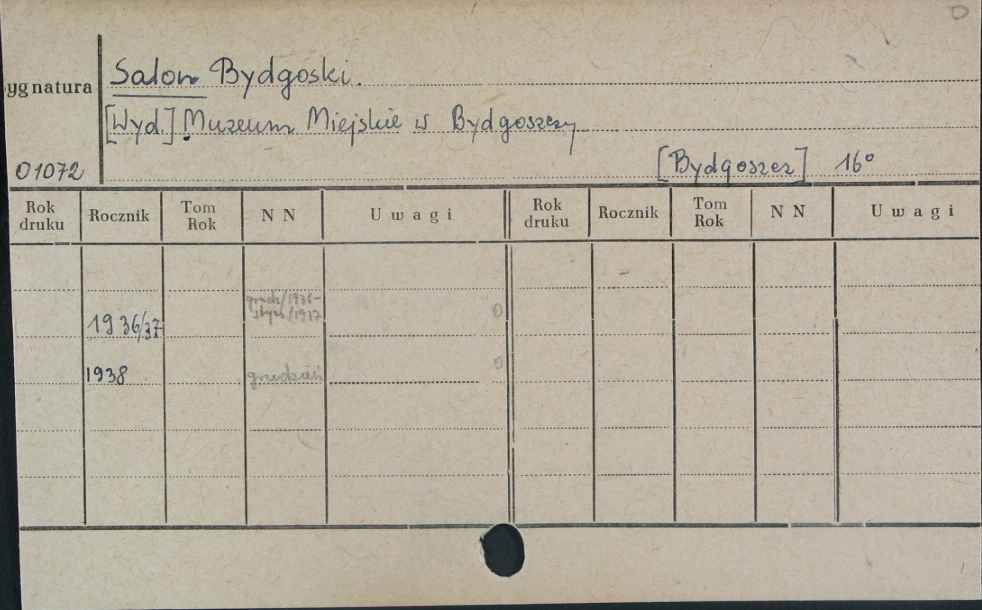 O
Salon Bydgoski.
ygnatura
[Wyd.] Muzeum Miejskie w Bydgoszczy
[Bydgoszcz] 16°
01072
Rok druku Rocznik Tom Rok N N Uwagi Rok druku Rocznik Tom Rok N N Uwagi
grudz/1936-
stycz/1937
1936/37 0
1938 grudzień 0